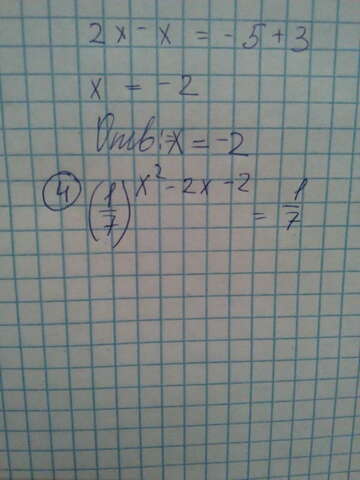 2x - x = -5 + 3
x = -2
Отв: x = -2
④ (1/7)^(x² - 2x - 2) = 1/7